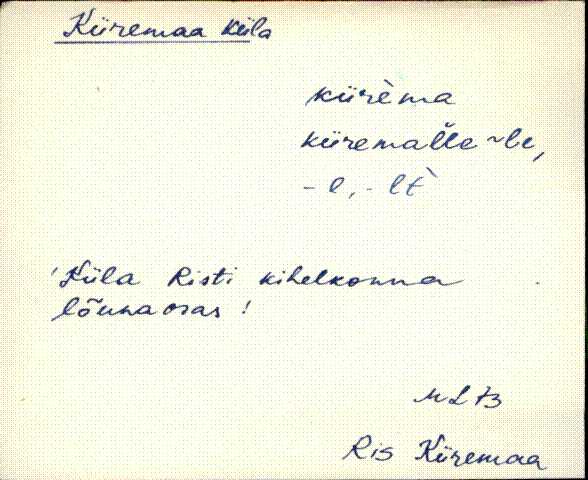 Kiiremaa küla
kiirèma
kiiremaĺle ~le,
-l, - lt̀
'Küla Risti kihelkonna
lõunaosas!
ML 73
Ris Kiiremaa